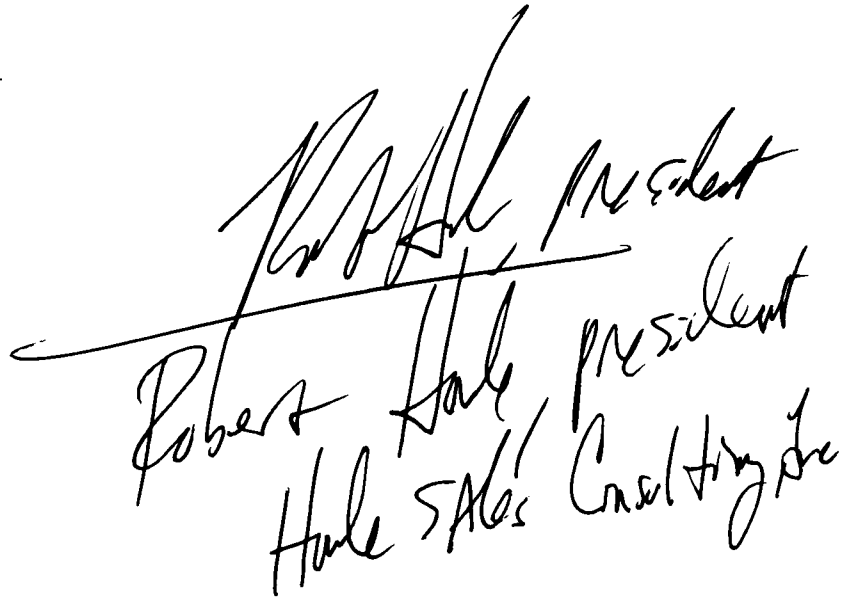 president
Robert Houle, president
Houle Sales Consulting Inc